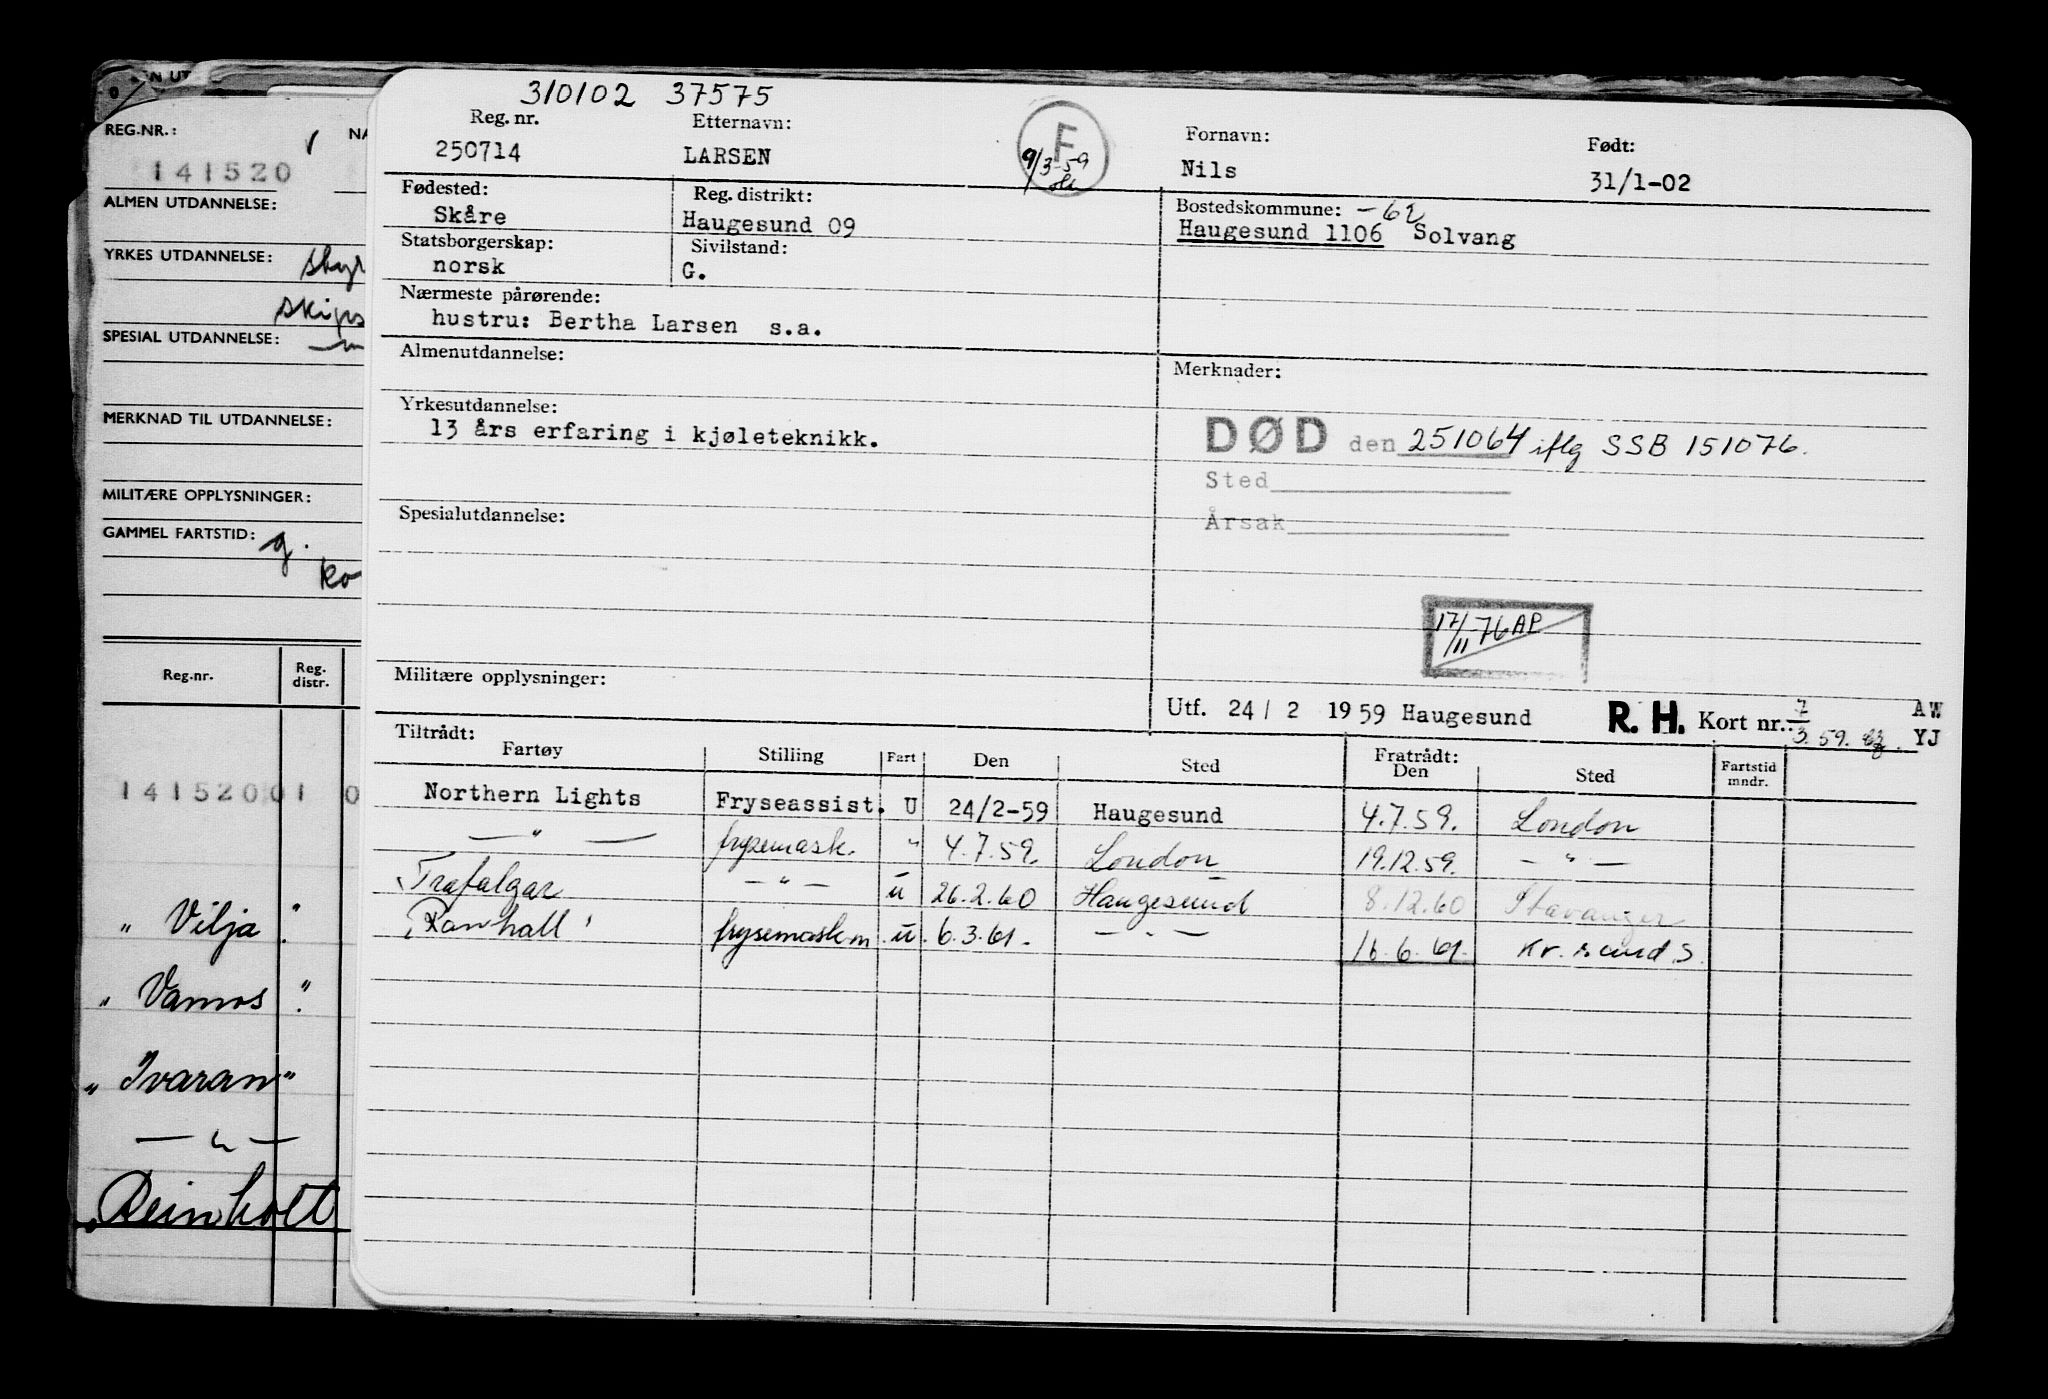 EN UT
REG.NR.:
NA
141520
ALMEN UTDANNELSE:
YRKES UTDANNELSE: styr
skips
SPESIAL UTDANNELSE:
MERKNAD TIL UTDANNELSE:
MILITÆRE OPPLYSNINGER:
GAMMEL FARTSTID: g.
ko
Reg.nr. Reg. distr.
141520 01 0
" Vilja "
" Vamos "
" Ivaran "
— " —
Reinholt
310102 37575
Reg. nr. Etternavn: Fornavn: Født:
250714 LARSEN F 9/3-59 Nils 31/1-02
Fødested: Reg. distrikt: Bostedskommune: -62
Skåre Haugesund 09 Haugesund 1106 Solvang
Statsborgerskap: Sivilstand:
norsk G.
Nærmeste pårørende:
hustru: Bertha Larsen s.a.
Almenutdannelse:
Merknader:
Yrkesutdannelse:
13 års erfaring i kjøleteknikk.
DØD den 251064 iflg SSB 151076.
Sted
Årsak
Spesialutdannelse:
17/11 76 AP
Militære opplysninger:
Utf. 24/2 1959 Haugesund R. H. Kort nr.: 7/3 59. AW
YJ
Tiltrådt: Fratrådt:
Fartøy Stilling Fart Den Sted Den Sted Fartstid mndr.
Northern Lights Fryseassist. U 24/2-59 Haugesund 4.7.59. London
— " — frysemask. " 4.7.59. London 19.12.59. — " —
Trafalgar — " — u 26.2.60 Haugesund 8.12.60 Stavanger
Ranhall frysemaskm. u. 6.3.61. — " — 16.6.61. Kr.sund S.